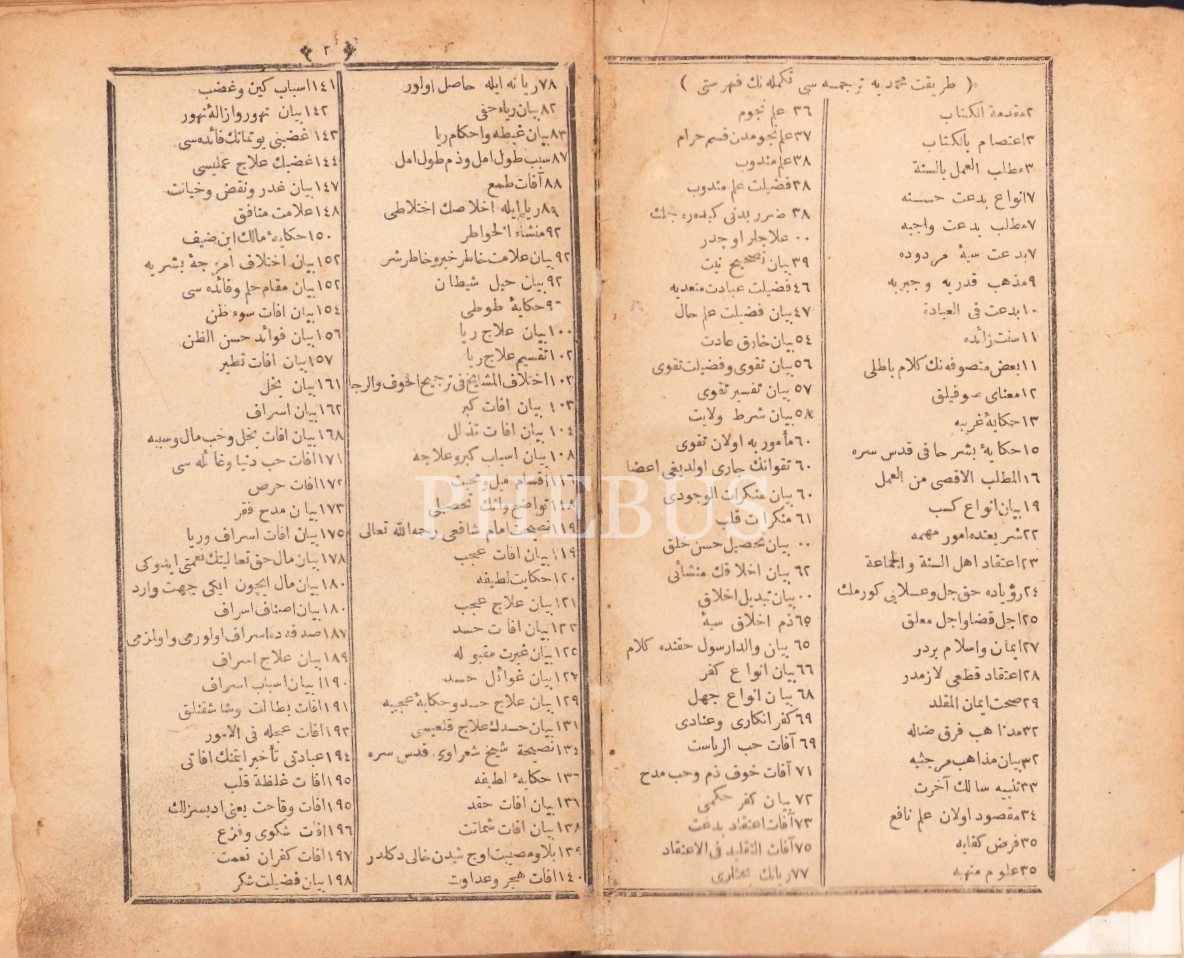 ( طريقت محمديه ترجمه سى تكمله نك فهرستى )
٢ مقدمة الكتاب
٣ اعتصام بالكتاب
٣ مطلب العمل بالسنة
٧ انواع بدعت حسنه
٧ مطلب بدعت واجبه
٧ بدعت سيئۀ مردوده
٩ مذهب قدريه وجبريه
١٠ بدعت فى العبادة
١١ سنت زائده
١١ بعض متصوفه نك كلام باطلى
١٢ معناى صوفيلق
١٣ حكايۀ غريبه
١٥ حكايۀ بشر حافى قدس سره
١٦ المطلب الاقصى من العمل
١٩ بيان انواع كسب
٢٢ شريعتده امور مهمه
٢٣ اعتقاد اهل السنة والجماعة
٢٤ رؤياده حق جل وعلايى كورمك
٢٥ اجل قضا واجل معلق
٢٧ ايمان واسلام بردر
٢٨ اعتقاد قطعى لازمدر
٢٩ صحت ايمان المقلد
٣٢ مذاهب فرق ضاله
٣٢ بيان مذاهب مرجئيه
٣٣ تنبيه سالك آخرت
٣٤ مقصود اولان علم نافع
٣٥ فرض كفايه
٣٥ علوم منهيه
٣٦ علم نجوم
٣٧ علم نجومدن قسم حرام
٣٨ علم مندوب
٣٨ فضيلت علم مندوب
٣٨ ضرر بدنى كيدەرەجك
٠٠ علاجلر اوچدر
٣٩ بيان تصحيح نيت
٤٦ فضيلت عبادت متعديه
٤٧ بيان فضيلت علم حال
٥٤ بيان خارق عادت
٥٦ بيان تقوى وفضيلت تقوى
٥٧ بيان تفسير تقوى
٥٨ بيان شرط ولايت
٦٠ مأمور به اولان تقوى
٦٠ تقوانك جارى اولديغى اعضا
٦٠ بيان منكرات الوجودى
٦١ منكرات قلب
٠٠ بيان تحصيل حسن خلق
٦٢ بيان اخلاقك منشائى
٠٠ بيان تبديل اخلاق
٦٥ ذم اخلاق سيئه
٦٥ بيان والدا رسول حقنده كلام
٦٦ بيان انواع كفر
٦٨ بيان انواع جهل
٦٩ كفر انكارى وعنادى
٦٩ آفات حب الرياست
٧١ آفات خوف ذم وحب مدح
٧٢ بيان كفر حكمى
٧٣ آفات اعتقاد بدعت
٧٥ آفات التقليد فى الاعتقاد
٧٧ ريانك
٢
٧٨ ريا نه ايله حاصل اولور
٨٢ بيان رياء خفى
٨٣ بيان غبطه واحكام ريا
٨٧ سبب طول امل وذم طول امل
٨٨ آفات طمع
٨٩ ريا ايله اخلاصك اختلاطى
٩٢ منشاء الخواطر
٩٢ بيان علامت خاطر خير وخاطر شر
٩٢ بيان حيل شيطان
حكايۀ طوطى
١٠٠ بيان علاج ريا
١٠٢ تقسيم علاج ريا
١٠٢ اختلاف المشايخ فى ترجيح الخوف والرجا
١٠٣ بيان افات كبر
١٠٤ بيان افات تذلل
١٠٨ بيان اسباب كبر وعلاجه
١١٦ اقسام ميل ومحبت
١١٨ تواضع وانك تحصيلى
١١٩ نصيحت امام شافعى رحمه الله تعالى
١١٩ بيان افات عجب
١٢٠ حكايت لطيفه
١٢١ بيان علاج عجب
١٢٢ بيان افات حسد
١٢٢ بيان غيرت مقبوله
١٢٦ بيان غوائل حسد
١٢٩ بيان علاج حسد وحكايۀ عجيبه
١٣١ بيان حسدك علاج قلعيمى
١٣٤ نصيحة شيخ شعراوى قدس سره
١٣٦ حكايۀ لطيفه
١٣٦ بيان افات حقد
١٣٨ بيان افات شماتت
١٣٩ بلا ومصيبت اوچ شيدن خالى دكلدر
١٤٠ افات هجر وعداوت
١٤١ اسباب كين وغضب
١٤٢ بيان تهور وازالۀ تهور
١٤٣ غضبنى يوتمانك فائده سى
١٤٤ غضبك علاج عمليسى
١٤٧ بيان غدر ونقض وخيانت
١٤٨ علامت منافق
١٥٠ حكايۀ مالك ابن ضيف
١٥٢ بيان اختلاف امزجۀ بشريه
١٥٢ بيان مقام حلم وفائده سى
١٥٤ بيان افات سوء ظن
١٥٦ بيان فوائد حسن الظن
١٥٧ بيان افات تطير
١٦١ بيان بخل
١٦٢ بيان اسراف
١٦٨ بيان افات بخل وحب مال وسببه
١٧١ آفات حب دنيا وغائله سى
١٧٢ افات حرص
١٧٣ بيان مدح فقر
١٧٥ بيان افات اسراف وريا
١٧٨ بيان مال حق تعالينك نعمتى ايدوكى
١٨٠ بيان مال ايچون ايكى جهت وارد
١٨٠ بيان اصناف اسراف
١٨٧ صدقه ده اسراف اولورمى واولنرمى
١٨٩ بيان علاج اسراف
١٩٠ بيان اسباب اسراف
١٩١ افات بطالت وشاشقنلق
١٩٣ افات عجله فى الامور
١٩٤ عبادتى تأخير ايتمنك افاتى
١٩٥ افات غلظة قلب
١٩٥ افات وقاحت يعنى ادبسزلك
١٩٦ افت شكوى وفزع
١٩٧ افات كفران نعمت
١٩٨ بيان فضيلت شكر
PHEBUS